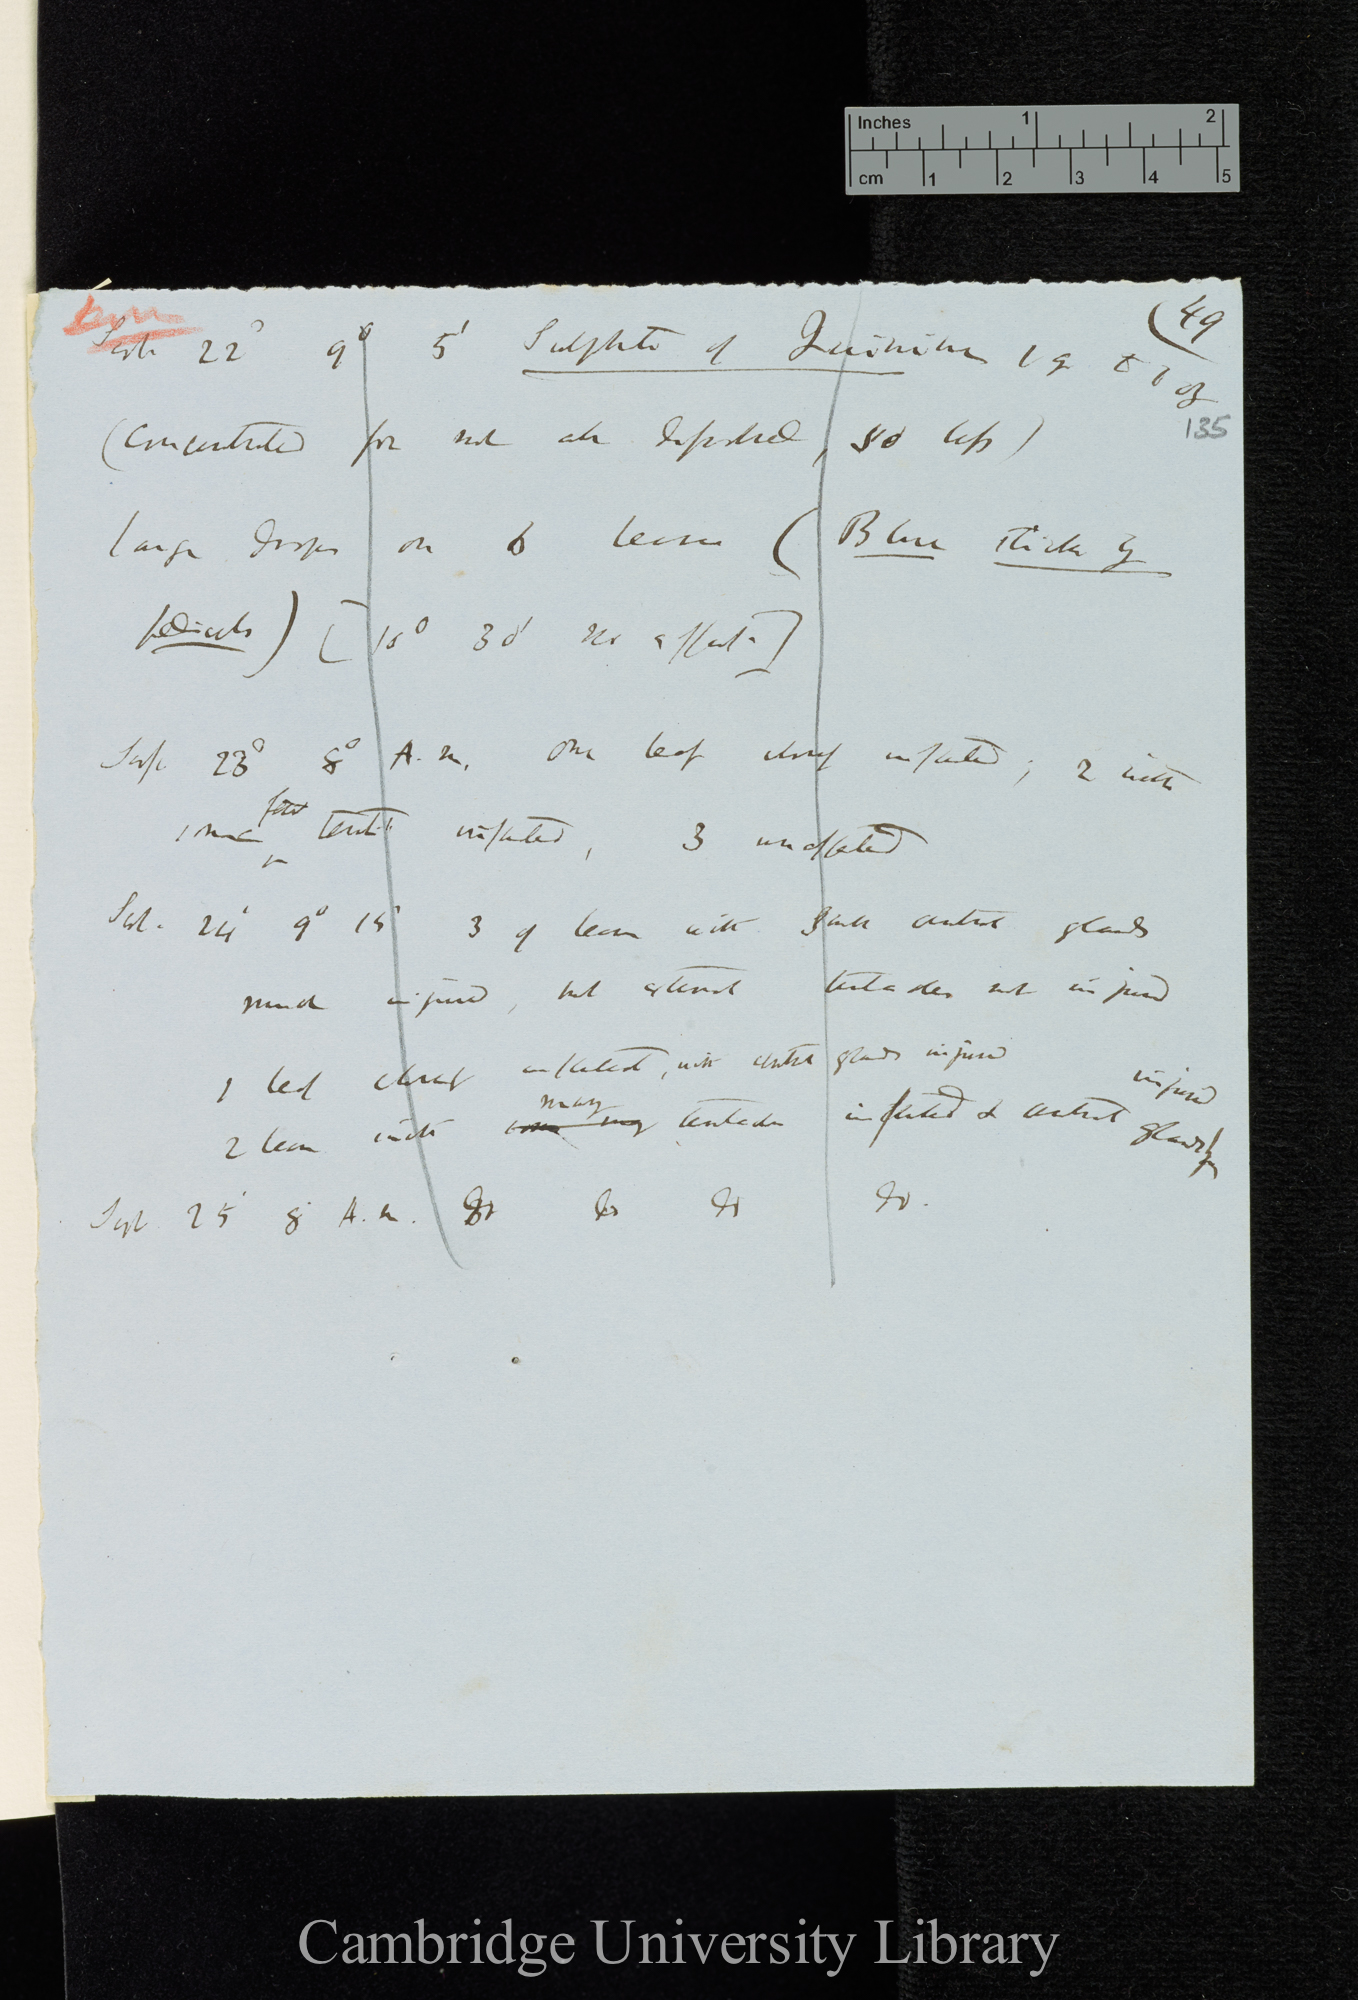 Inches 1 2
cm 1 2 3 4 5
(49
Sept 22° 9° 5' Sulphate of Quinine 1 gr to 1 oz
135
(Concentrated for not all dissolved, so less)
large drops on 6 leaves (Blue sticks by
pedicels) [10° 30' no effect]
Sept 23° 8° A.M. One leaf closely inflected; 2 with
few
tentac inflected, 3 unaffected
Sept. 24' 9° 15' 3 of leaves with central glands
much injured, but external tentacles not injured
1 leaf closely inflected, with central glands injured
many
2 leaves with tentacles inflected & central glands injured
Sept 25' 8° A.M. Do Do Do Do.
Cambridge University Library